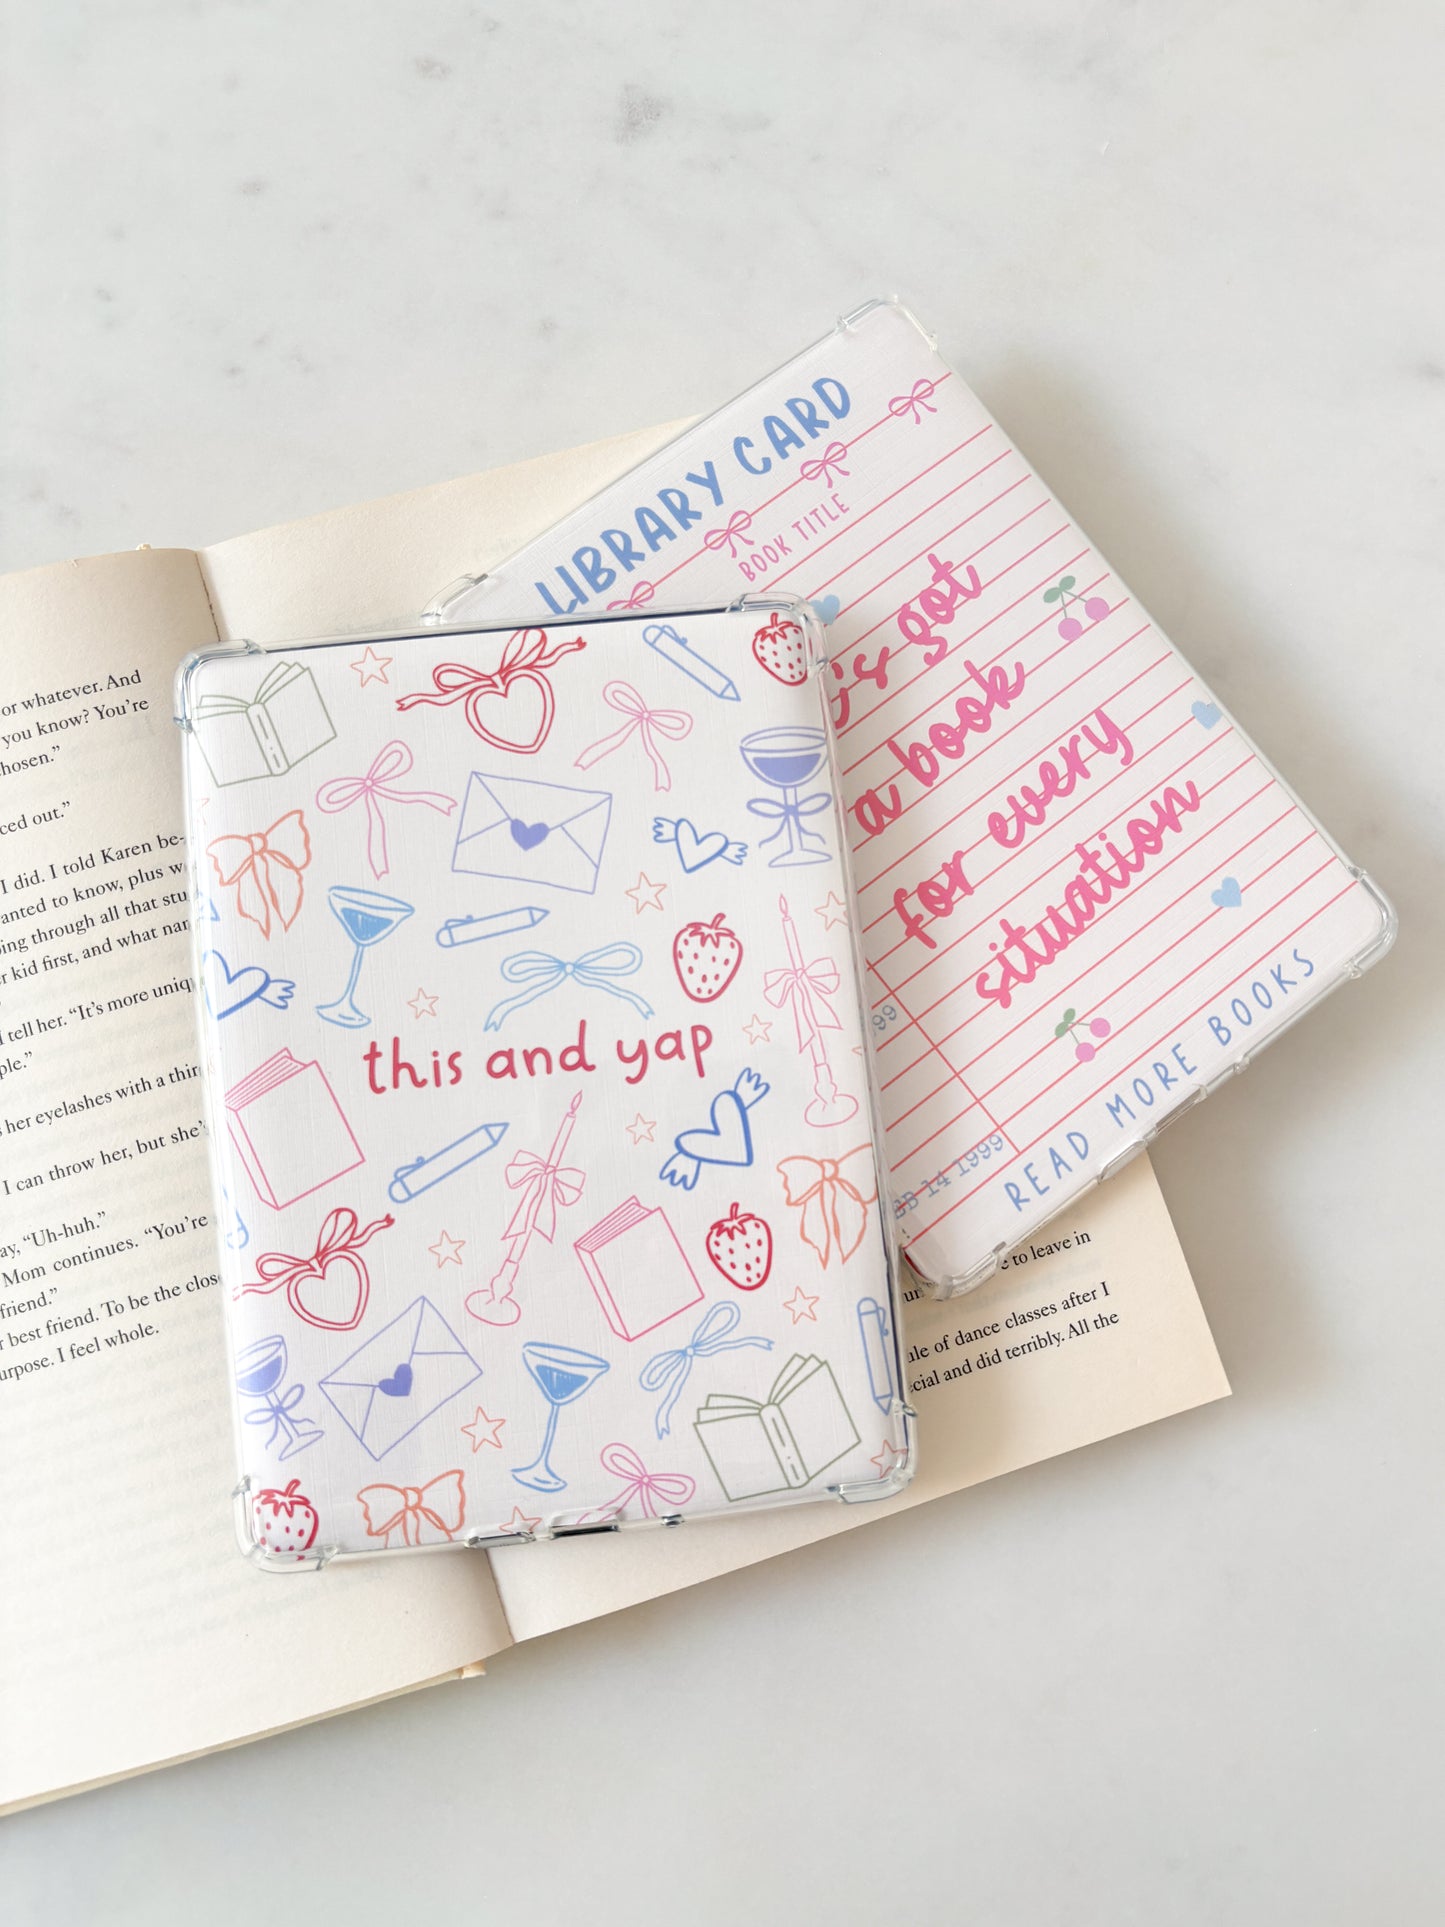 LIBRARY CARD
BOOK TITLE
's got
a book
for every
situation
99
14 1999
READ MORE BOOKS
this and yap
or whatever. And
you know? You're
hosen."
ced out."
I did. I told Karen be-
anted to know, plus
ing through all that
er kid first, and what
I tell her. "It's more
ple."
her eyelashes with a
I can throw her, but she's
ay, "Uh-huh."
Mom continues. "You're
friend."
r best friend. To be the
urpose. I feel whole.
to leave in
ule of dance classes after I
ecial and did terribly. All the